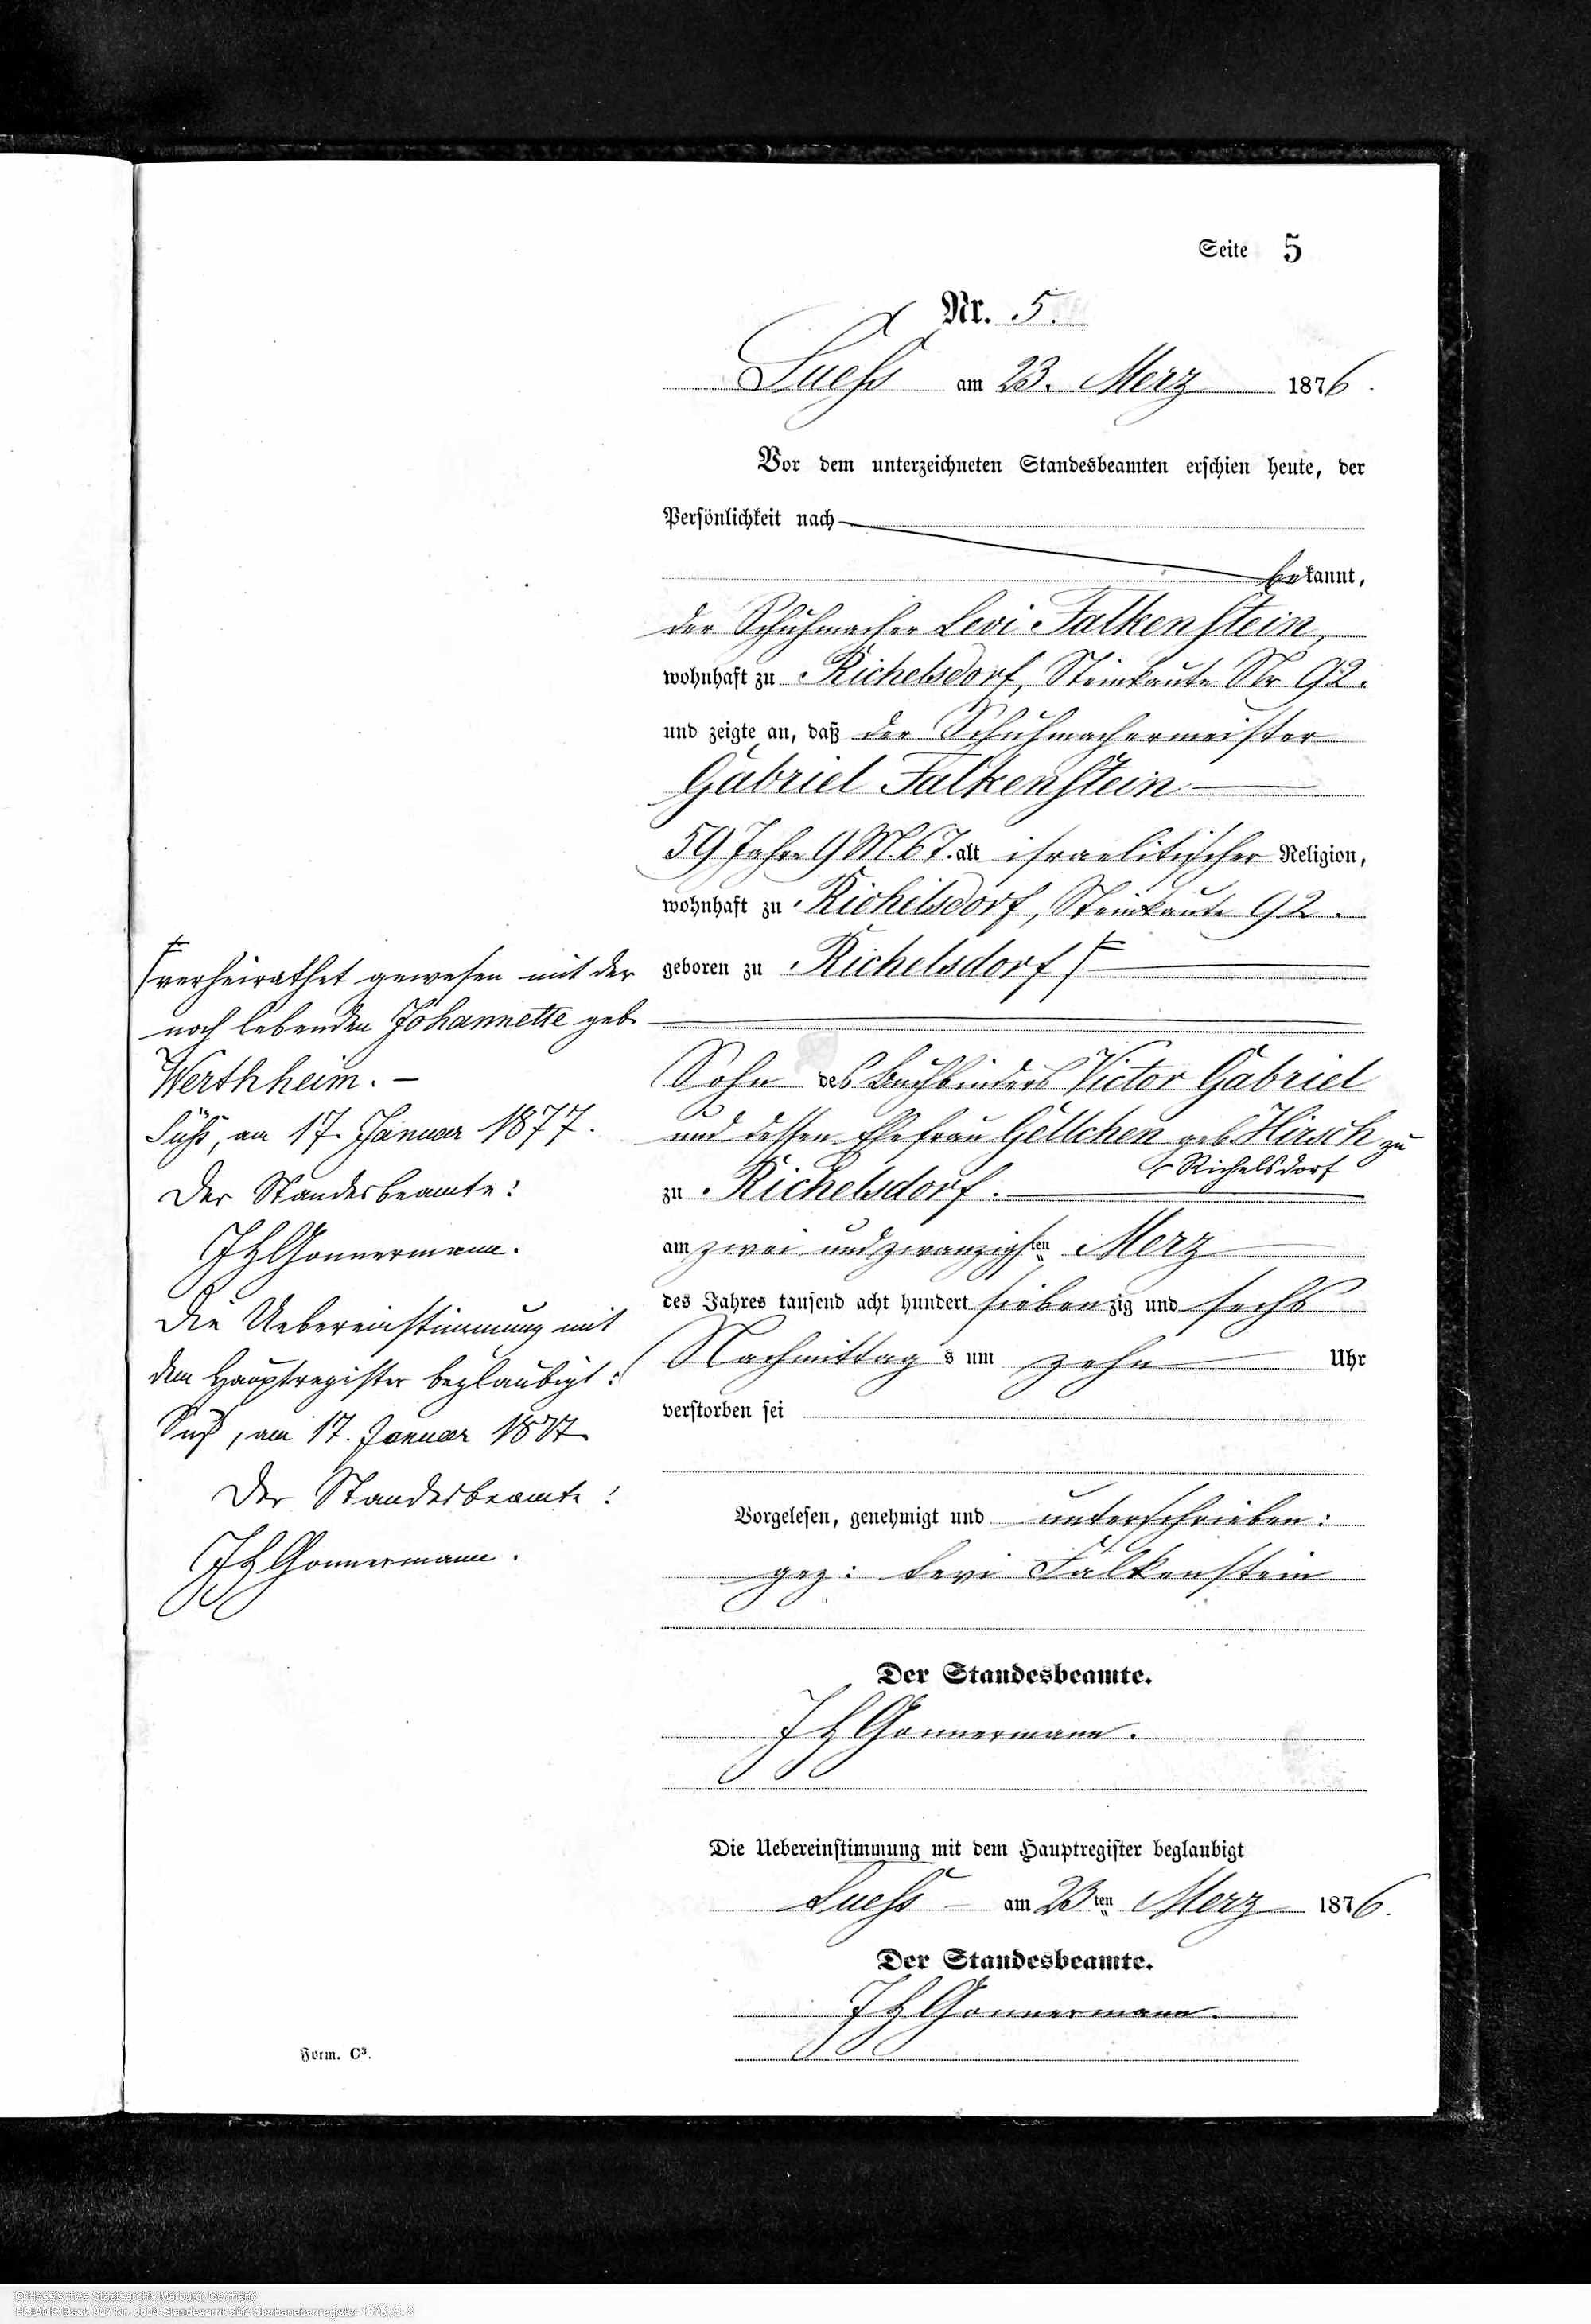 Seite 5
Nr. 5.
Suess am 23. Merz 1876.
Vor dem unterzeichneten Standesbeamten erschien heute, der
Persönlichkeit nach
bekannt,
der Schuhmacher Levi Falkenstein,
wohnhaft zu Richelsdorf, Steinkaute Nr 92.
und zeigte an, daß der Schuhmachermeister
Gabriel Falkenstein
59 Jahre 9 M. 6 T. alt israelitischer Religion,
wohnhaft zu Richilsdorf, Steinkaute 92.
geboren zu Richelsdorf
Sohn des Buchbinders Victor Gabriel
und dessen Ehefrau Gellchen geb Hirsch zu
Richelsdorf
zu Richelsdorf.
am zwei und zwanzigsten Merz
des Jahres tausend acht hundert siebenzig und sechs
Nachmittag s um zehn Uhr
verstorben sei
Vorgelesen, genehmigt und unterschrieben:
gez: Levi Falkenstein
Der Standesbeamte.
J H Gonnermann.
Die Uebereinstimmung mit dem Hauptregister beglaubigt
Suess am 23ten Merz 1876.
Der Standesbeamte.
J H Gonnermann.
verheirathet gewesen mit der
noch lebenden Johannette geb.
Werthheim. –
Süß, am 17. Januar 1877.
Der Standesbeamte:
J H Gonnermann.
Die Uebereinstimmung mit
dem Hauptregister beglaubigt:
Süß, am 17. Januar 1877
Der Standesbeamte:
J H Gonnermann.
Form. C3.
© Hessisches Staatsarchiv Marburg, Germany